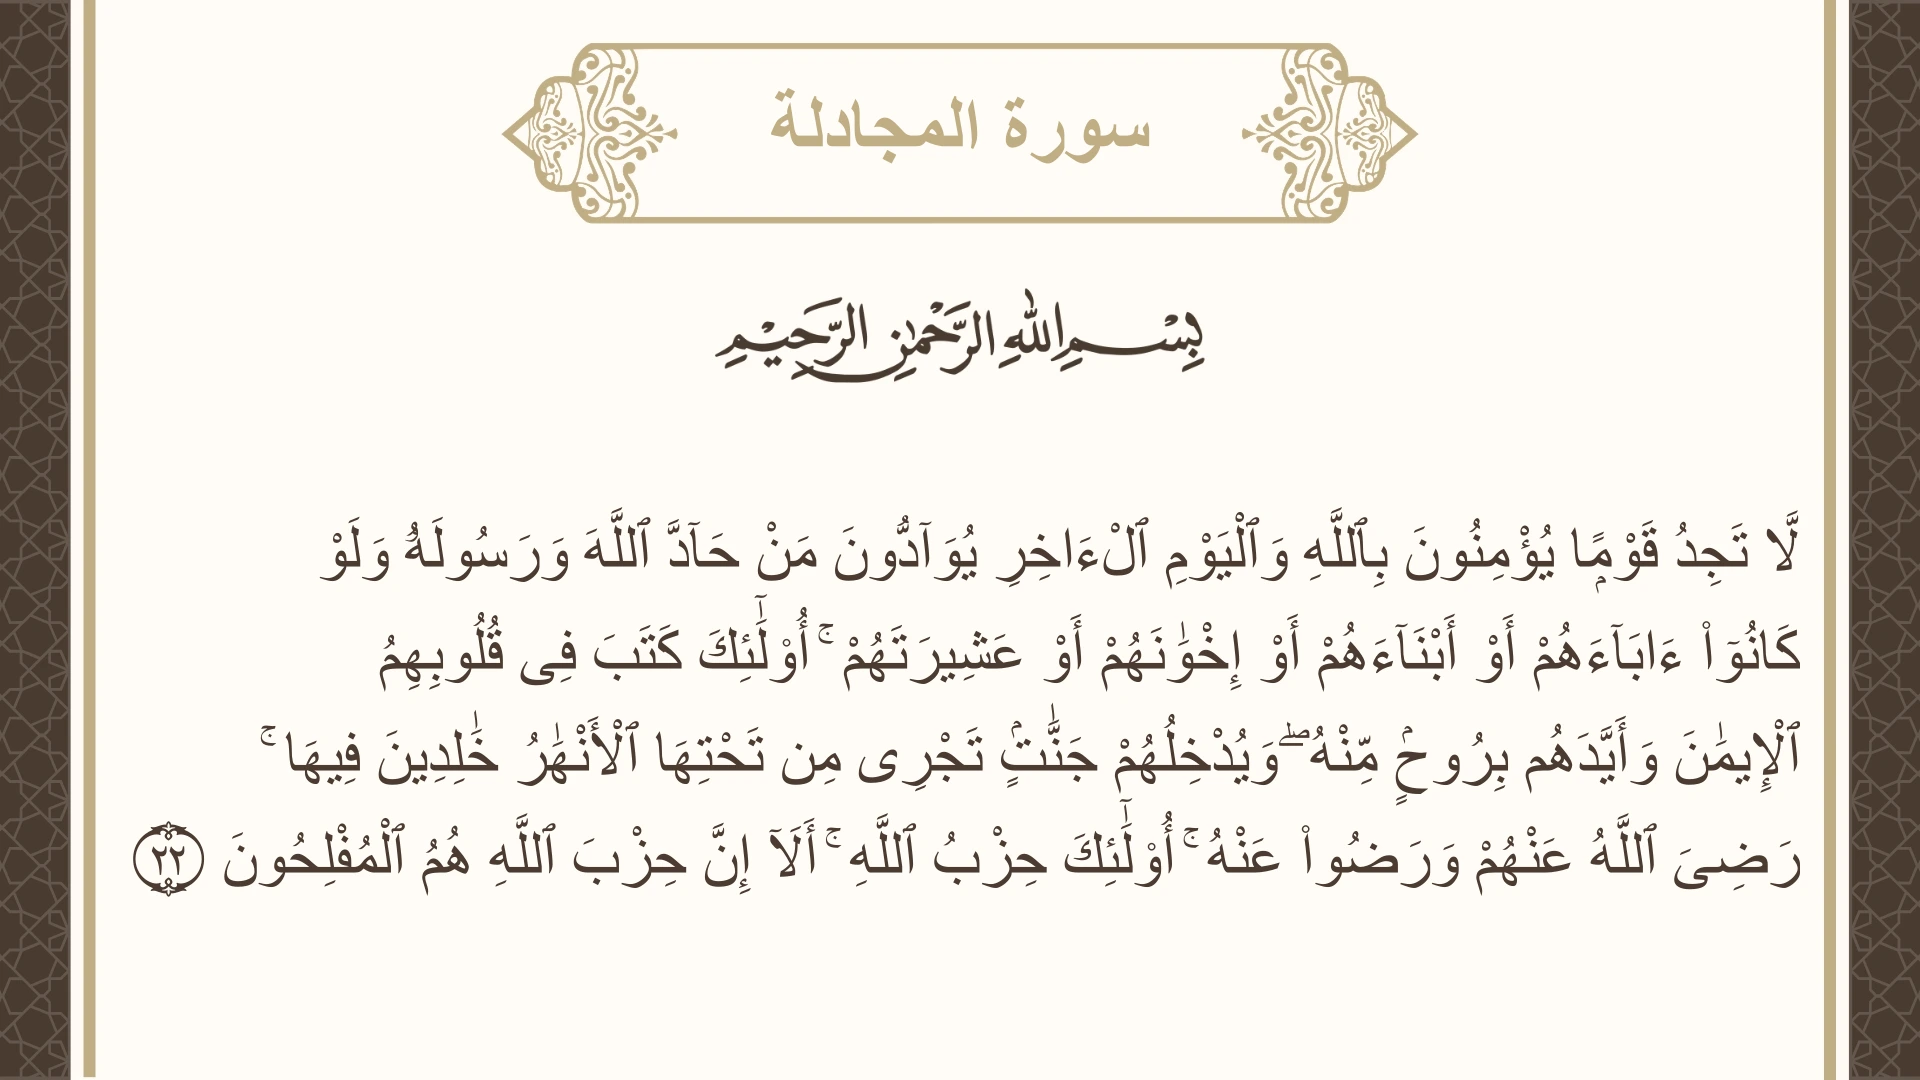 سورة المجادلة
بِسْمِ اللهِ الرَّحْمٰنِ الرَّحِيْمِ
لَّا تَجِدُ قَوْمًۭا يُؤْمِنُونَ بِٱللَّهِ وَٱلْيَوْمِ ٱلْءَاخِرِ يُوَآدُّونَ مَنْ حَآدَّ ٱللَّهَ وَرَسُولَهُۥ وَلَوْ
كَانُوٓا۟ ءَابَآءَهُمْ أَوْ أَبْنَآءَهُمْ أَوْ إِخْوَٰنَهُمْ أَوْ عَشِيرَتَهُمْ ۚ أُو۟لَٰٓئِكَ كَتَبَ فِى قُلُوبِهِمُ
ٱلْإِيمَٰنَ وَأَيَّدَهُم بِرُوحٍۢ مِّنْهُ ۖ وَيُدْخِلُهُمْ جَنَّٰتٍۢ تَجْرِى مِن تَحْتِهَا ٱلْأَنْهَٰرُ خَٰلِدِينَ فِيهَا ۚ
رَضِىَ ٱللَّهُ عَنْهُمْ وَرَضُوا۟ عَنْهُ ۚ أُو۟لَٰٓئِكَ حِزْبُ ٱللَّهِ ۚ أَلَآ إِنَّ حِزْبَ ٱللَّهِ هُمُ ٱلْمُفْلِحُونَ ٢٢